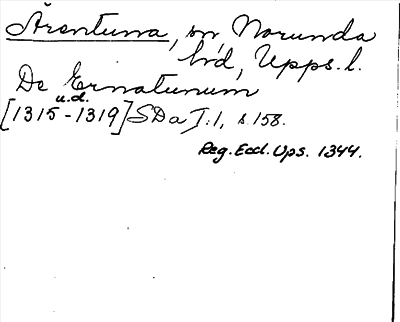 Ärentuna, sn, Norunda
hd, Upps. l.
De Ernatunum
u.d.
[1315-1319] SDa I:1, s. 158.
Reg. Eccl. Ups. 1344.